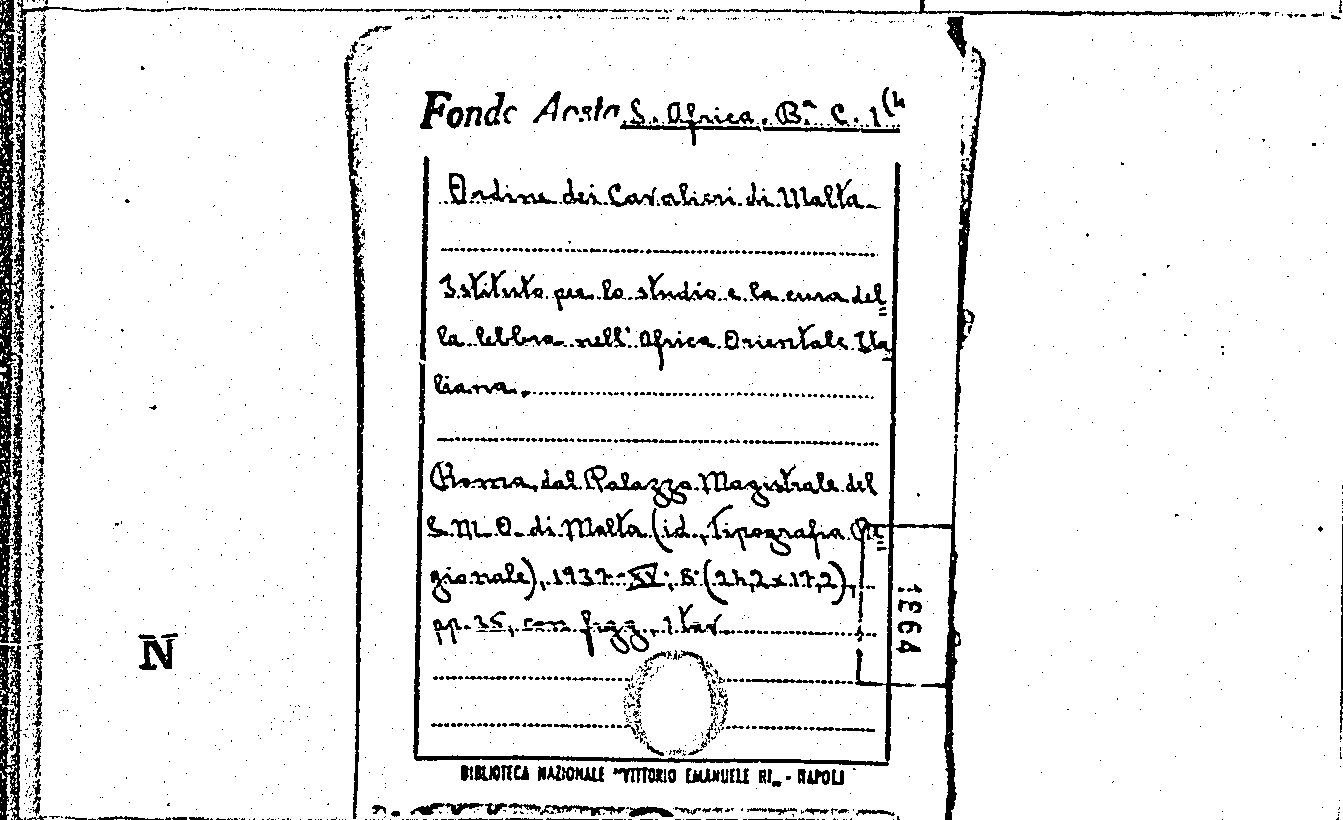 Fondo Aosta S. Africa. Bª C. 1(4
Ordine dei Cavalieri di Malta
Istituto per lo studio e la cura del=
la lebbra nell'Africa Orientale Ita=
liana.
Roma, dal Palazzo Magistrale del
S. M. O. di Malta (id., Tipografia Re=
gionale), 1937-XV; 8° (24,2x17,2),
pp. 35, con figg., 1 tav.
1964
N
BIBLIOTECA NAZIONALE "VITTORIO EMANUELE III" - NAPOLI